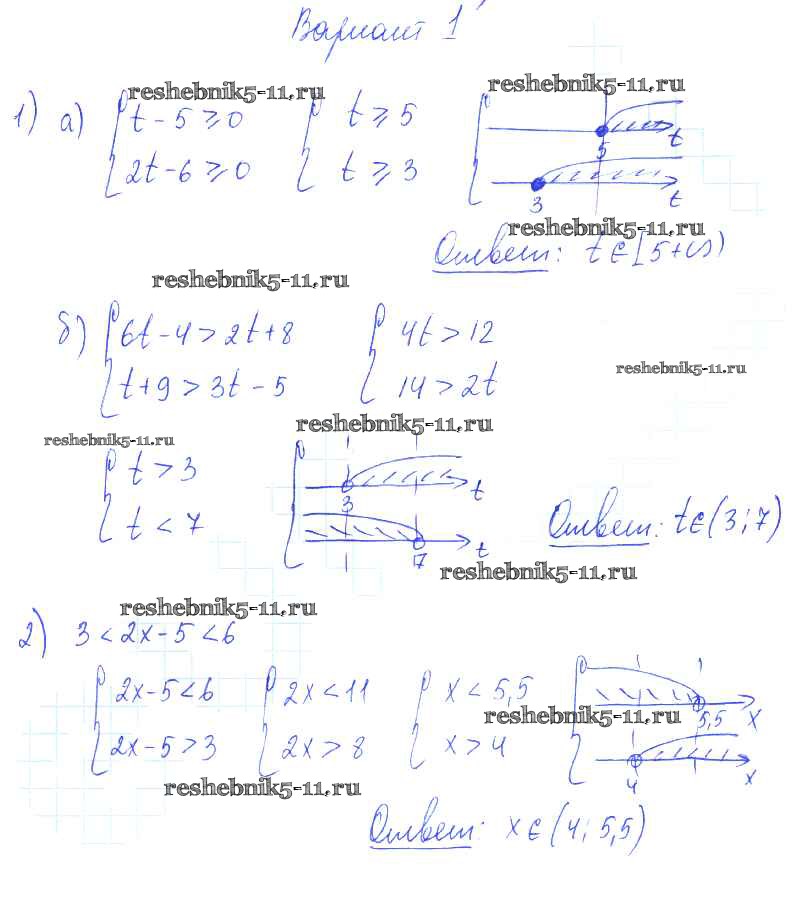 Вариант 1
reshebnik5-11.ru reshebnik5-11.ru
1) а) { t - 5 ⩾ 0 { t ⩾ 5
{ 2t - 6 ⩾ 0 { t ⩾ 3
5 t
3 t
reshebnik5-11.ru
Ответ: t ∈ [5 + ∞)
reshebnik5-11.ru
б) { 6t - 4 > 2t + 8 { 4t > 12
{ t + 9 > 3t - 5 { 14 > 2t
reshebnik5-11.ru
reshebnik5-11.ru
reshebnik5-11.ru
{ t > 3
{ t < 7
3 t
7 t
Ответ: t ∈ (3; 7)
reshebnik5-11.ru
reshebnik5-11.ru
2) 3 < 2x - 5 < 6
{ 2x - 5 < 6 { 2x < 11 { x < 5,5
{ 2x - 5 > 3 { 2x > 8 { x > 4
reshebnik5-11.ru
5,5 x
4 x
reshebnik5-11.ru
Ответ: x ∈ (4; 5,5)